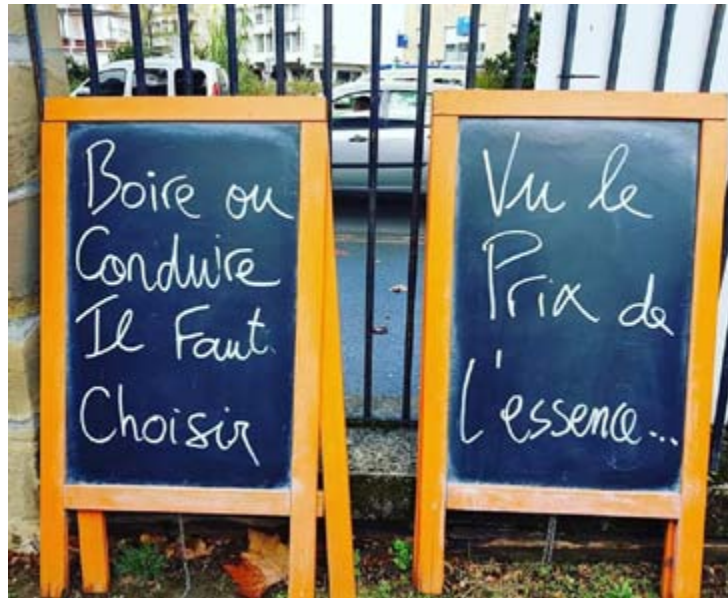 Boire ou
Conduire
Il Faut
Choisir
Vu le
Prix de
l'essence...